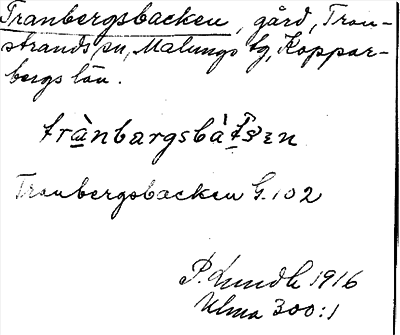 Tranbergsbacken, gård, Tran-
strands sn, Malungs tg, Koppar-
bergs län.
trànbargsbàtsen
Tranbergsbacken G. 102
P. Lundh 1916
Ulma 300:1